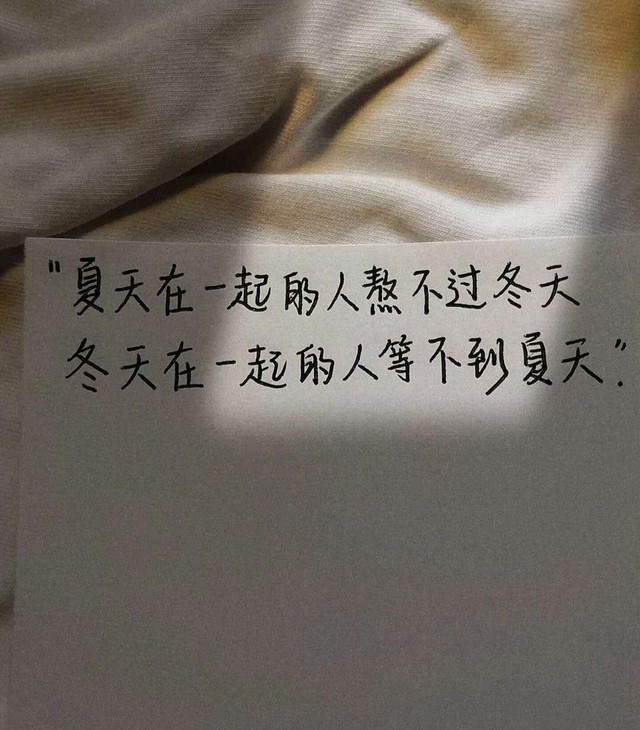 "夏天在一起的人熬不过冬天
冬天在一起的人等不到夏天".